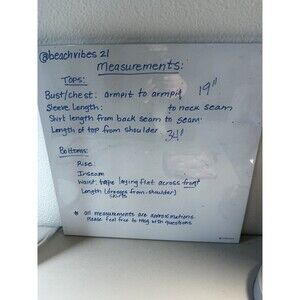 @beachvibes 21
Measurements:
Tops:
Bust/Chest: armpit to armpit 19"
Sleeve Length: to neck seam
Shirt length from back seam to seam
Length of top from shoulder 34"
Bottoms:
Rise
Inseam
Waist: tape laying flat across front
Length (dresses from shoulder)
skirts
* all measurements are approximations
Please feel free to msg with questions